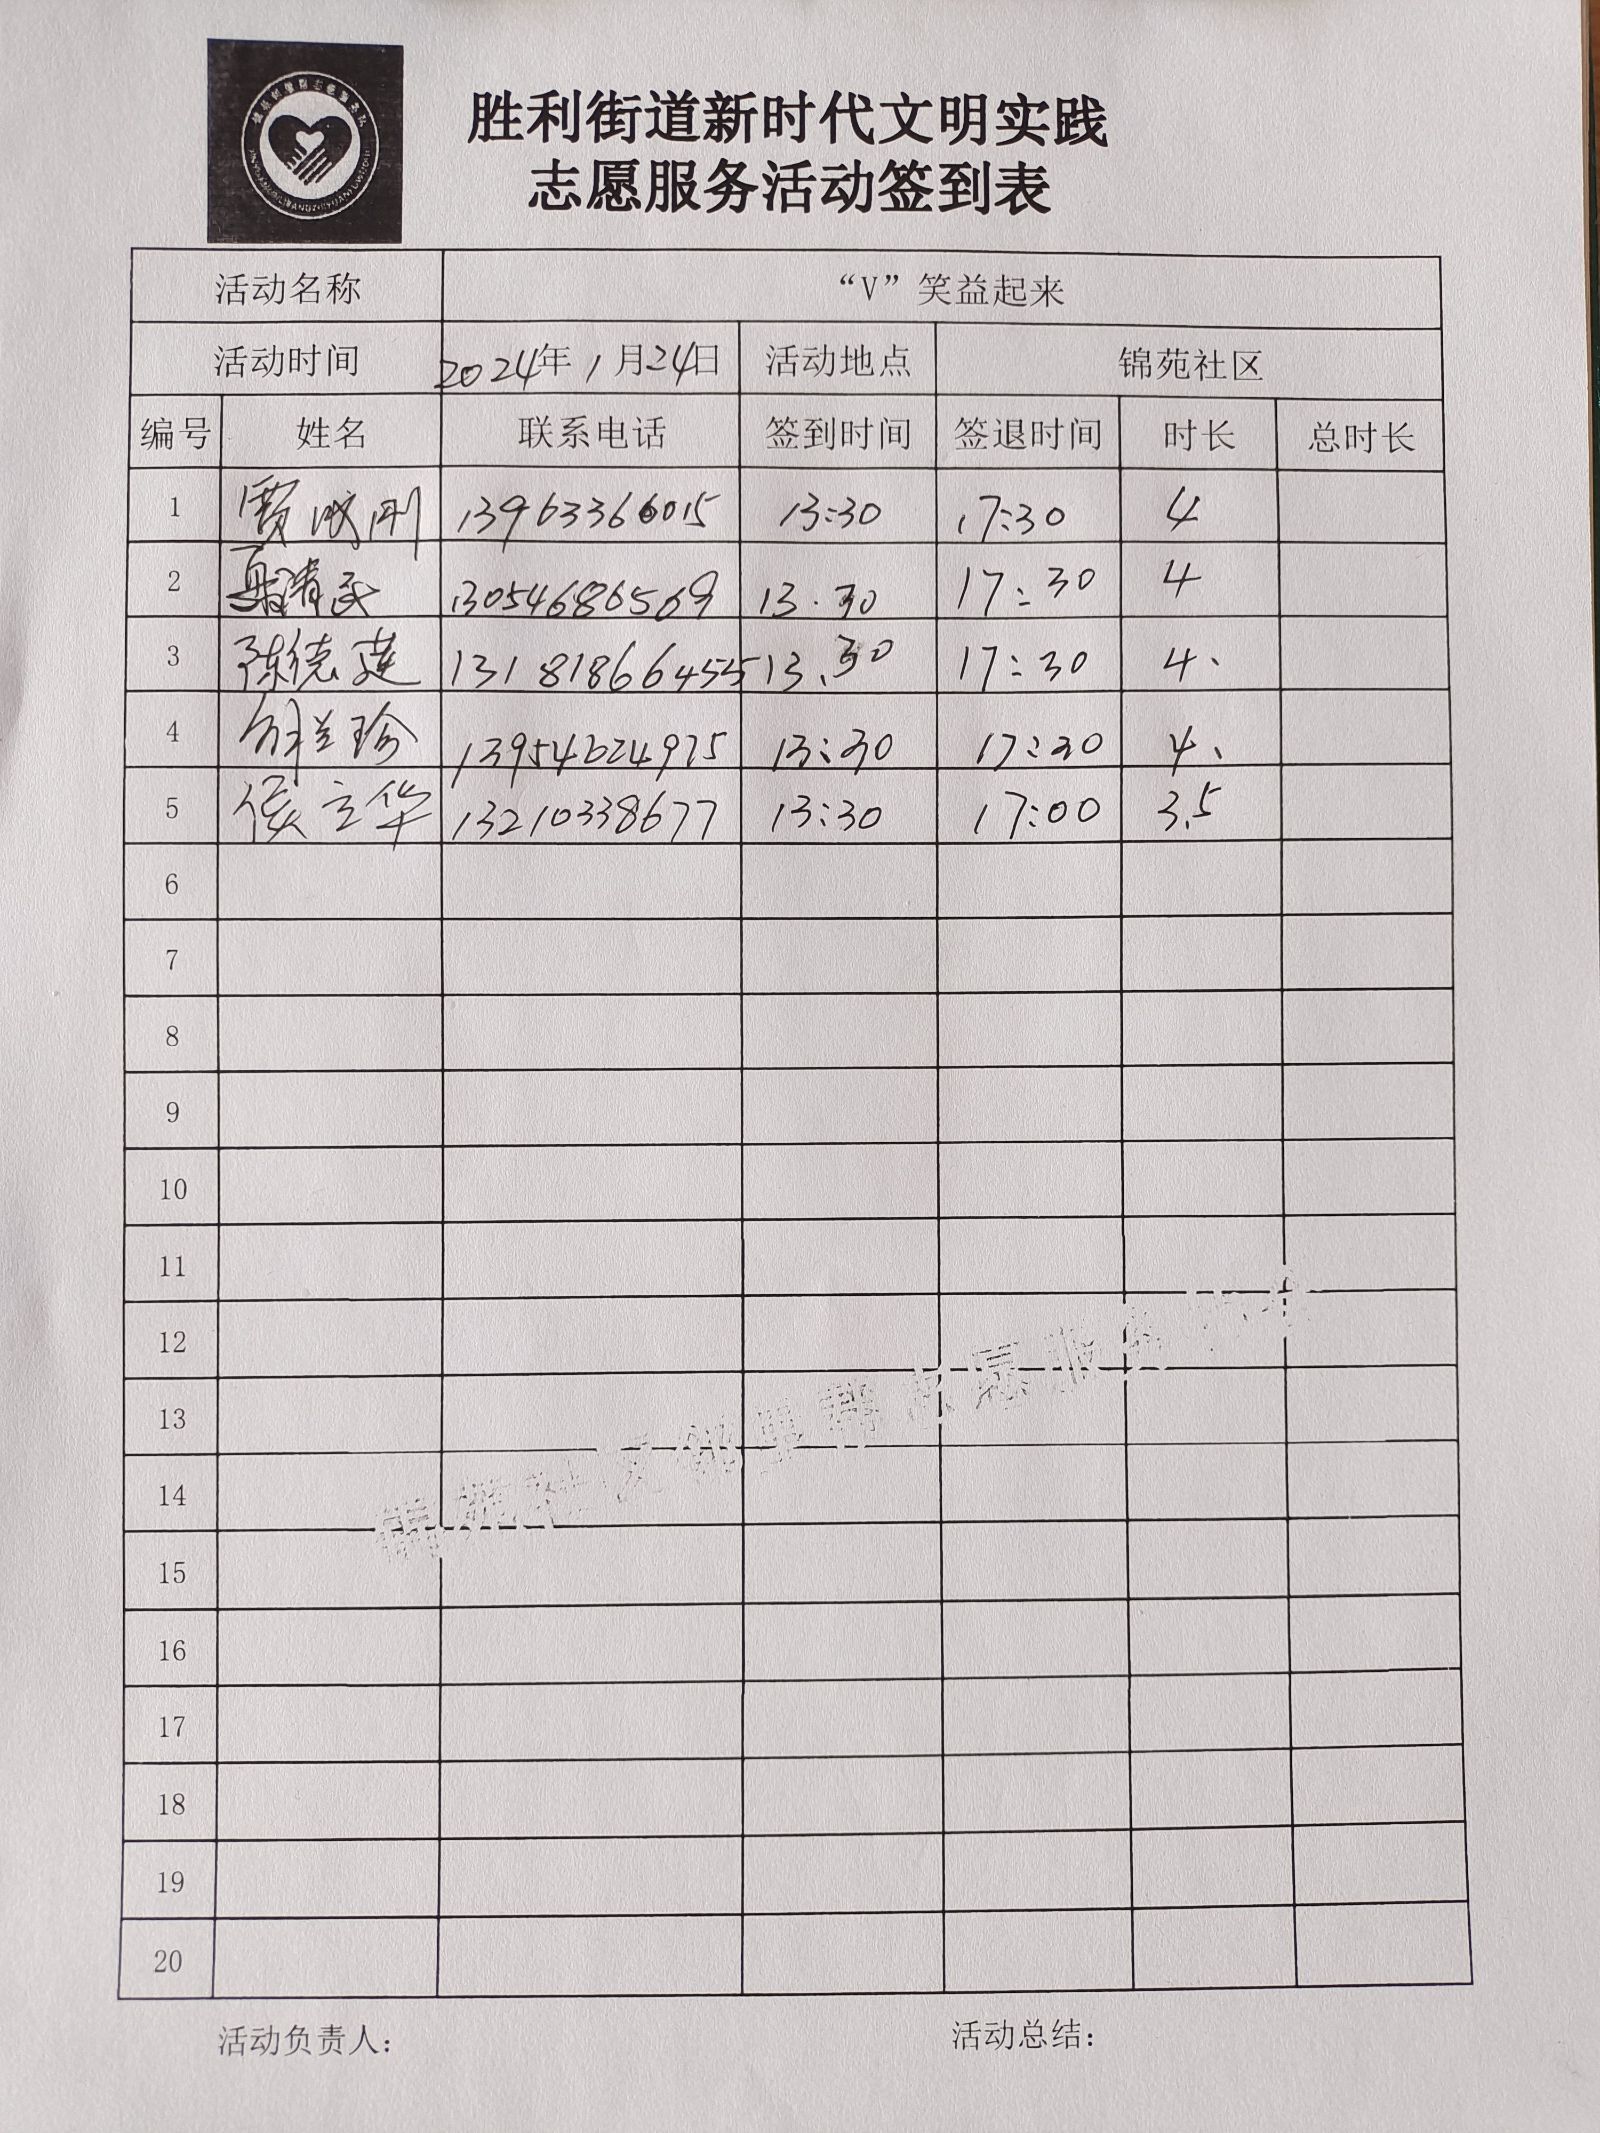 胜利街道新时代文明实践
志愿服务活动签到表
活动名称 “V”笑益起来
活动时间 2024年1月24日 活动地点 锦苑社区
编号 姓名 联系电话 签到时间 签退时间 时长 总时长
1 贾成刚 13963366015 13:30 17:30 4
2 清民 13054686569 13.30 17:30 4
3 陈德莲 13181866455 13.30 17:30 4、
4 兰珍 13954624975 13:30 17:30 4、
5 侯立华 13210338677 13:30 17:00 3.5
6
7
8
9
10
11
12
13
14
15
16
17
18
19
20
锦苑社区邻里帮志愿服务
活动负责人: 活动总结: